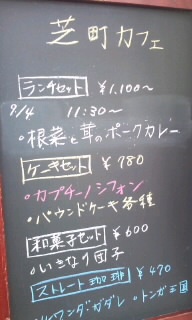 芝町カフェ
ランチセット ¥1.100〜
9/4 11:30〜
・根菜と茸のポークカレー
ケーキセット ¥780
・カプチーノシフォン
・パウンドケーキ各種
和菓子セット ¥600
・いきなり団子
ストレート珈琲 ¥470
ルワンダ ガダレ ・トンガ王国